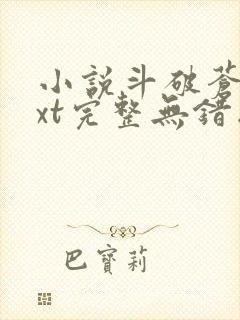 小說斗破蒼
xt完整無錯
巴寶莉